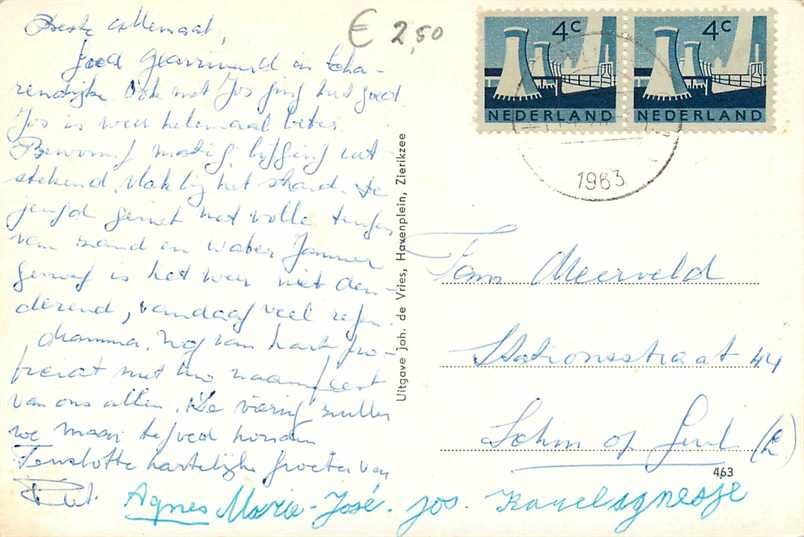 Beste allemaal,
€ 2,50
Goed gearriveerd in Scha-
rendijke. Ook met Jos ging het goed.
Jos is weer helemaal beter.
Bewoning matig, ligging uit
stekend, vlak bij het strand. De
jeugd geniet met volle teugen
van zand en water. Jammer
genoeg is het weer niet den-
derend, vandaag veel regen.
Mamma, nog van harte pro-
ficiat met uw naamfeest
van ons allen. De viering zullen
we maar tegoed houden
Tenslotte hartelijke groeten van
Piet. Agnes Marie-José. Jos. Karel
4c 4c
NEDERLAND NEDERLAND
1963
Uitgave joh. de Vries, Havenplein, Zierikzee
Fam Meerveld
Stationsstraat 44
Schin op Geul (L)
463